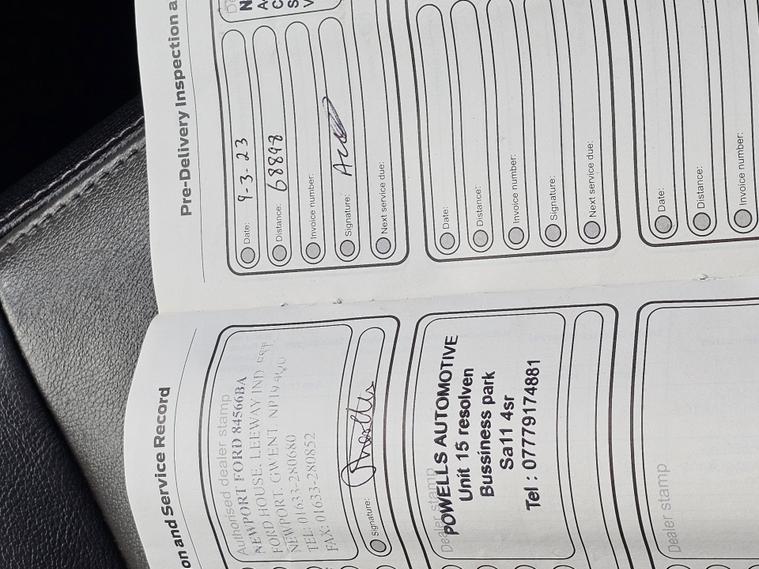 on and Service Record
Authorised dealer stamp
NEWPORT FORD 84566BA
FORD HOUSE, LEEWAY IND EST
NEWPORT, GWENT NP19 4QU
TEL: 01633-280680
FAX: 01633-280852
Signature:
Dealer stamp
POWELLS AUTOMOTIVE
Unit 15 resolven
Bussiness park
Sa11 4sr
Tel : 07779174881
Dealer stamp
Pre-Delivery Inspection a
Date: 9-3.23
Distance: 68898
Invoice number:
Signature:
Next service due:
Date:
Distance:
Invoice number:
Signature:
Next service due:
Date:
Distance:
Invoice number: